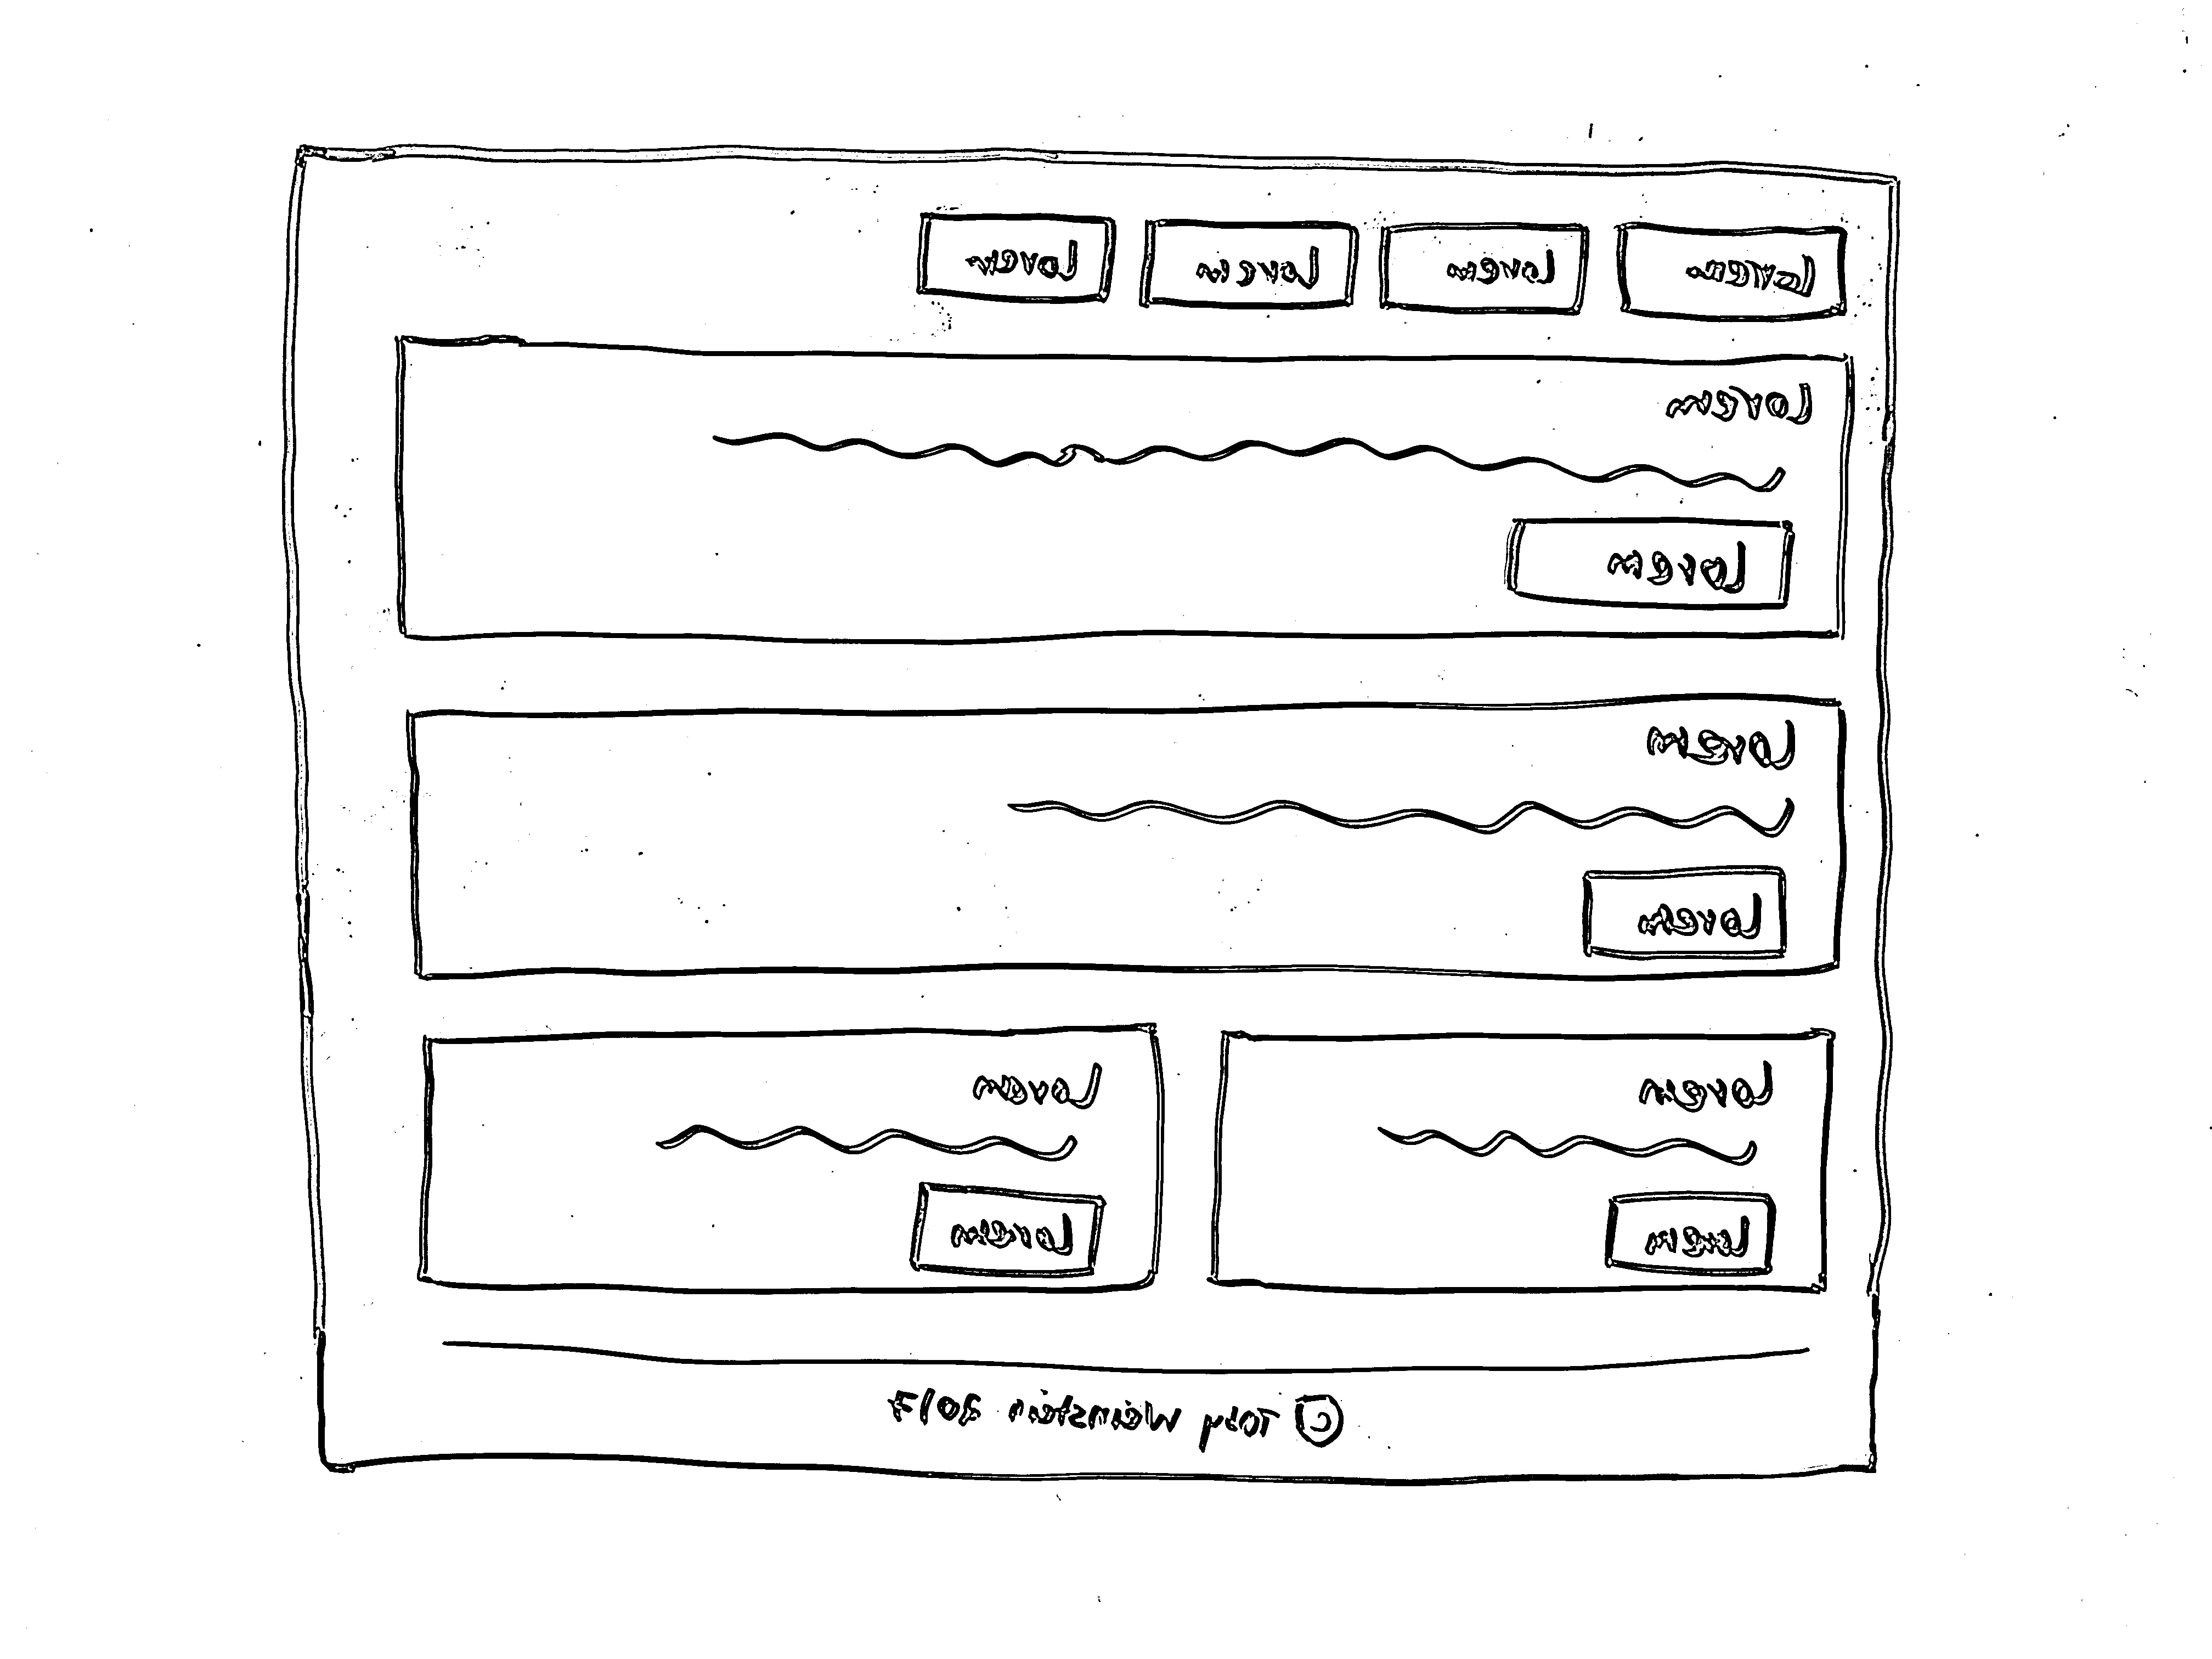 Lorem Lorem Lorem Lorem
Lorem
Lorem
Lorem
Lorem
Lorem
Lorem
Lorem
Lorem
© Weinstein 2017